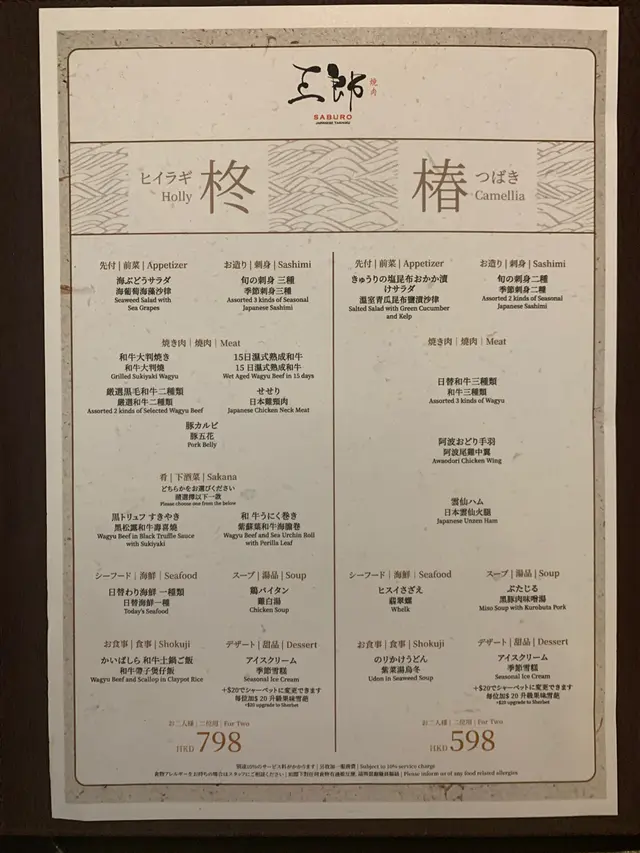 三郎
焼肉
SABURO
JAPANESE YAKINIKU
ヒイラギ
Holly
柊
椿
つばき
Camellia
先付 | 前菜 | Appetizer
海ぶどうサラダ
海葡萄海藻沙律
Seaweed Salad with
Sea Grapes
お造り | 刺身 | Sashimi
旬の刺身 三種
季節刺身三種
Assorted 3 kinds of Seasonal
Japanese Sashimi
焼き肉 | 燒肉 | Meat
和牛大判焼き
和牛大判燒
Grilled Sukiyaki Wagyu
15日濕式熟成和牛
15 日濕式熟成和牛
Wet Aged Wagyu Beef in 15 days
厳選黒毛和牛二種類
嚴選和牛二種類
Assorted 2 kinds of Selected Wagyu Beef
せせり
日本雞頸肉
Japanese Chicken Neck Meat
豚カルビ
豚五花
Pork Belly
肴 | 下酒菜 | Sakana
どちらかをお選びください
請選擇以下一款
Please choose one from the below
黒トリュフ すきやき
黑松露和牛壽喜燒
Wagyu Beef in Black Truffle Sauce
with Sukiyaki
和 牛うにく巻き
紫蘇葉和牛海膽卷
Wagyu Beef and Sea Urchin Roll
with Perilla Leaf
シーフード | 海鮮 | Seafood
日替わり海鮮 一種類
日替海鮮一種
Today's Seafood
スープ | 湯品 | Soup
鶏パイタン
雞白湯
Chicken Soup
お食事 | 食事 | Shokuji
かいばしら 和牛土鍋ご飯
和牛帶子煲仔飯
Wagyu Beef and Scallop in Claypot Rice
デザート | 甜品 | Dessert
アイスクリーム
季節雪糕
Seasonal Ice Cream
+$20でシャーベットに変更できます
每位加$ 20 升級果味雪葩
+$20 upgrade to Sherbet
お二人様 | 二位用 | For Two
HKD 798
先付 | 前菜 | Appetizer
きゅうりの塩昆布おかか漬
けサラダ
溫室青瓜昆布鹽漬沙律
Salted Salad with Green Cucumber
and Kelp
お造り | 刺身 | Sashimi
旬の刺身二種
季節刺身二種
Assorted 2 kinds of Seasonal
Japanese Sashimi
焼き肉 | 燒肉 | Meat
日替和牛三種類
和牛三種類
Assorted 3 kinds of Wagyu
阿波おどり手羽
阿波尾雞中翼
Awaodori Chicken Wing
雲仙ハム
日本雲仙火腿
Japanese Unzen Ham
シーフード | 海鮮 | Seafood
ヒスイさざえ
翡翠螺
Whelk
スープ | 湯品 | Soup
ぶたじる
黑豚肉味噌湯
Miso Soup with Kurobuta Pork
お食事 | 食事 | Shokuji
のりかけうどん
紫菜湯烏冬
Udon in Seaweed Soup
デザート | 甜品 | Dessert
アイスクリーム
季節雪糕
Seasonal Ice Cream
+$20でシャーベットに変更できます
每位加$ 20 升級果味雪葩
+$20 upgrade to Sherbet
お二人様 | 二位用 | For Two
HKD 598
別途10%のサービス料がかかります | 另收加一服務費 | Subject to 10% service charge
食物アレルギーをお持ちの場合はスタッフにご相談ください | 如閣下對任何食物有過敏反應, | Please inform us of any food related allergies